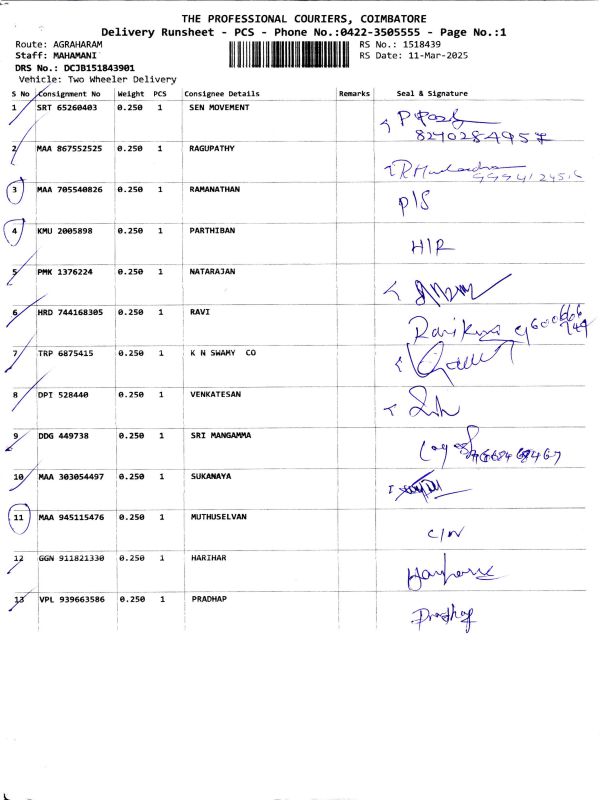 THE PROFESSIONAL COURIERS, COIMBATORE
Delivery Runsheet - PCS - Phone No.:0422-3505555 - Page No.:1
Route: AGRAHARAM RS No.: 1518439
Staff: MAHAMANI RS Date: 11-Mar-2025
DRS No.: DCJB151843901
Vehicle: Two Wheeler Delivery
S No Consignment No Weight PCS Consignee Details Remarks Seal & Signature
1 SRT 65260403 0.250 1 SEN MOVEMENT
8270284957
2 MAA 867552525 0.250 1 RAGUPATHY
3 MAA 705540826 0.250 1 RAMANATHAN P/S
4 KMU 2005898 0.250 1 PARTHIBAN H/R
5 PMK 1376224 0.250 1 NATARAJAN
6 HRD 744168305 0.250 1 RAVI
7 TRP 6875415 0.250 1 K N SWAMY CO
8 DPI 528440 0.250 1 VENKATESAN
9 DDG 449738 0.250 1 SRI MANGAMMA
10 MAA 303054497 0.250 1 SUKANAYA
11 MAA 945115476 0.250 1 MUTHUSELVAN C/N
12 GGN 911821330 0.250 1 HARIHAR
13 VPL 939663586 0.250 1 PRADHAP Pradhap